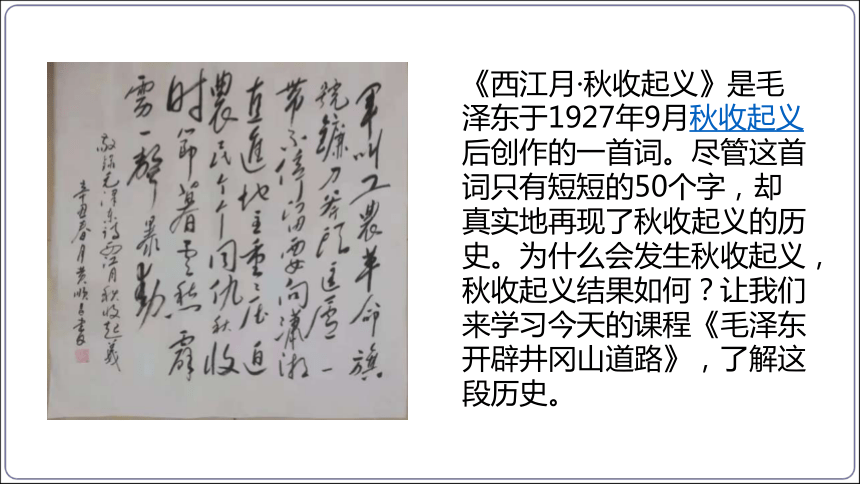 军叫工農革命旗
號鐮刀斧头匡廬一
带不停留要向瀟湘
直進地主重重压迫
農民个个同仇秋收
时節暮云愁霹
雳一聲暴動
敬録毛泽东詩西江月秋收起義
辛丑春月黄順書
《西江月·秋收起义》是毛
泽东于1927年9月秋收起义
后创作的一首词。尽管这首
词只有短短的50个字，却
真实地再现了秋收起义的历
史。为什么会发生秋收起义，
秋收起义结果如何？让我们
来学习今天的课程《毛泽东
开辟井冈山道路》，了解这
段历史。